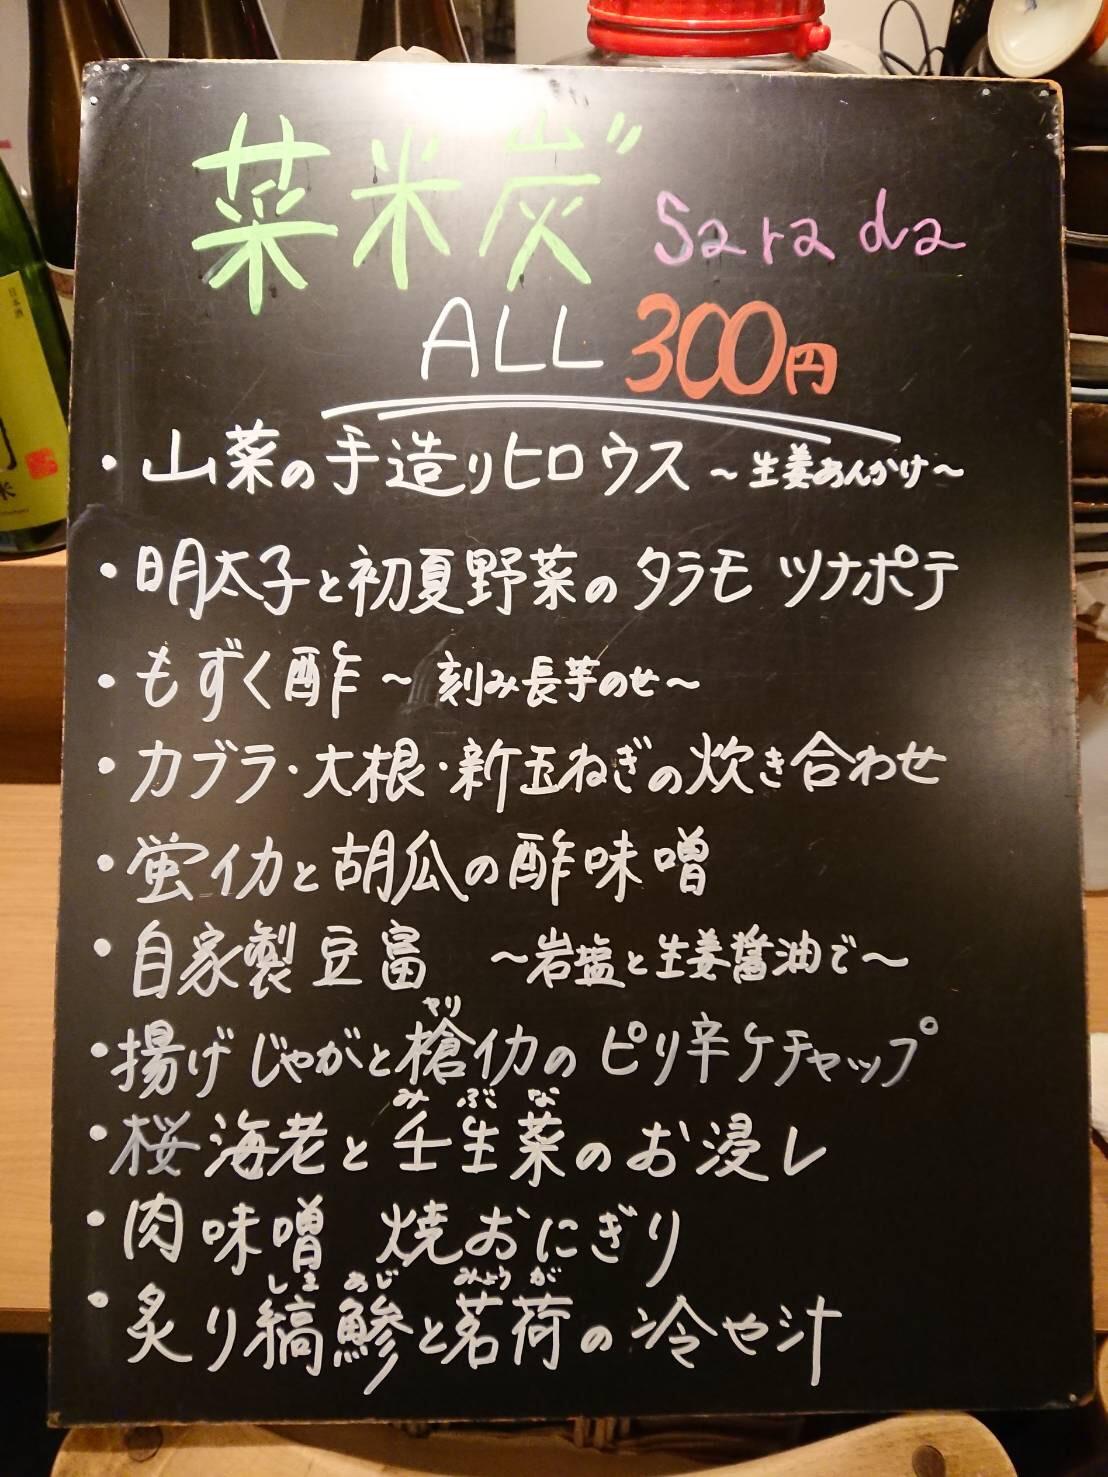 菜米炭" Sara da
ALL 300円
・山菜の手造りヒロウス ～生姜あんかけ～
・明太子と初夏野菜のタラモ ツナポテ
・もずく酢 ～刻み長芋のせ～
・カブラ・大根・新玉ねぎの炊き合わせ
・蛍イカと胡瓜の酢味噌
・自家製豆富 ～岩塩と生姜醤油で～
ヤリ
・揚げじゃがと槍イカのピリ辛ケチャップ
みぶな
・桜海老と壬生菜のお浸し
・肉味噌 焼おにぎり
しま あじ みょうが
・炙り縞鯵と茗荷の冷や汁
日本酒
米